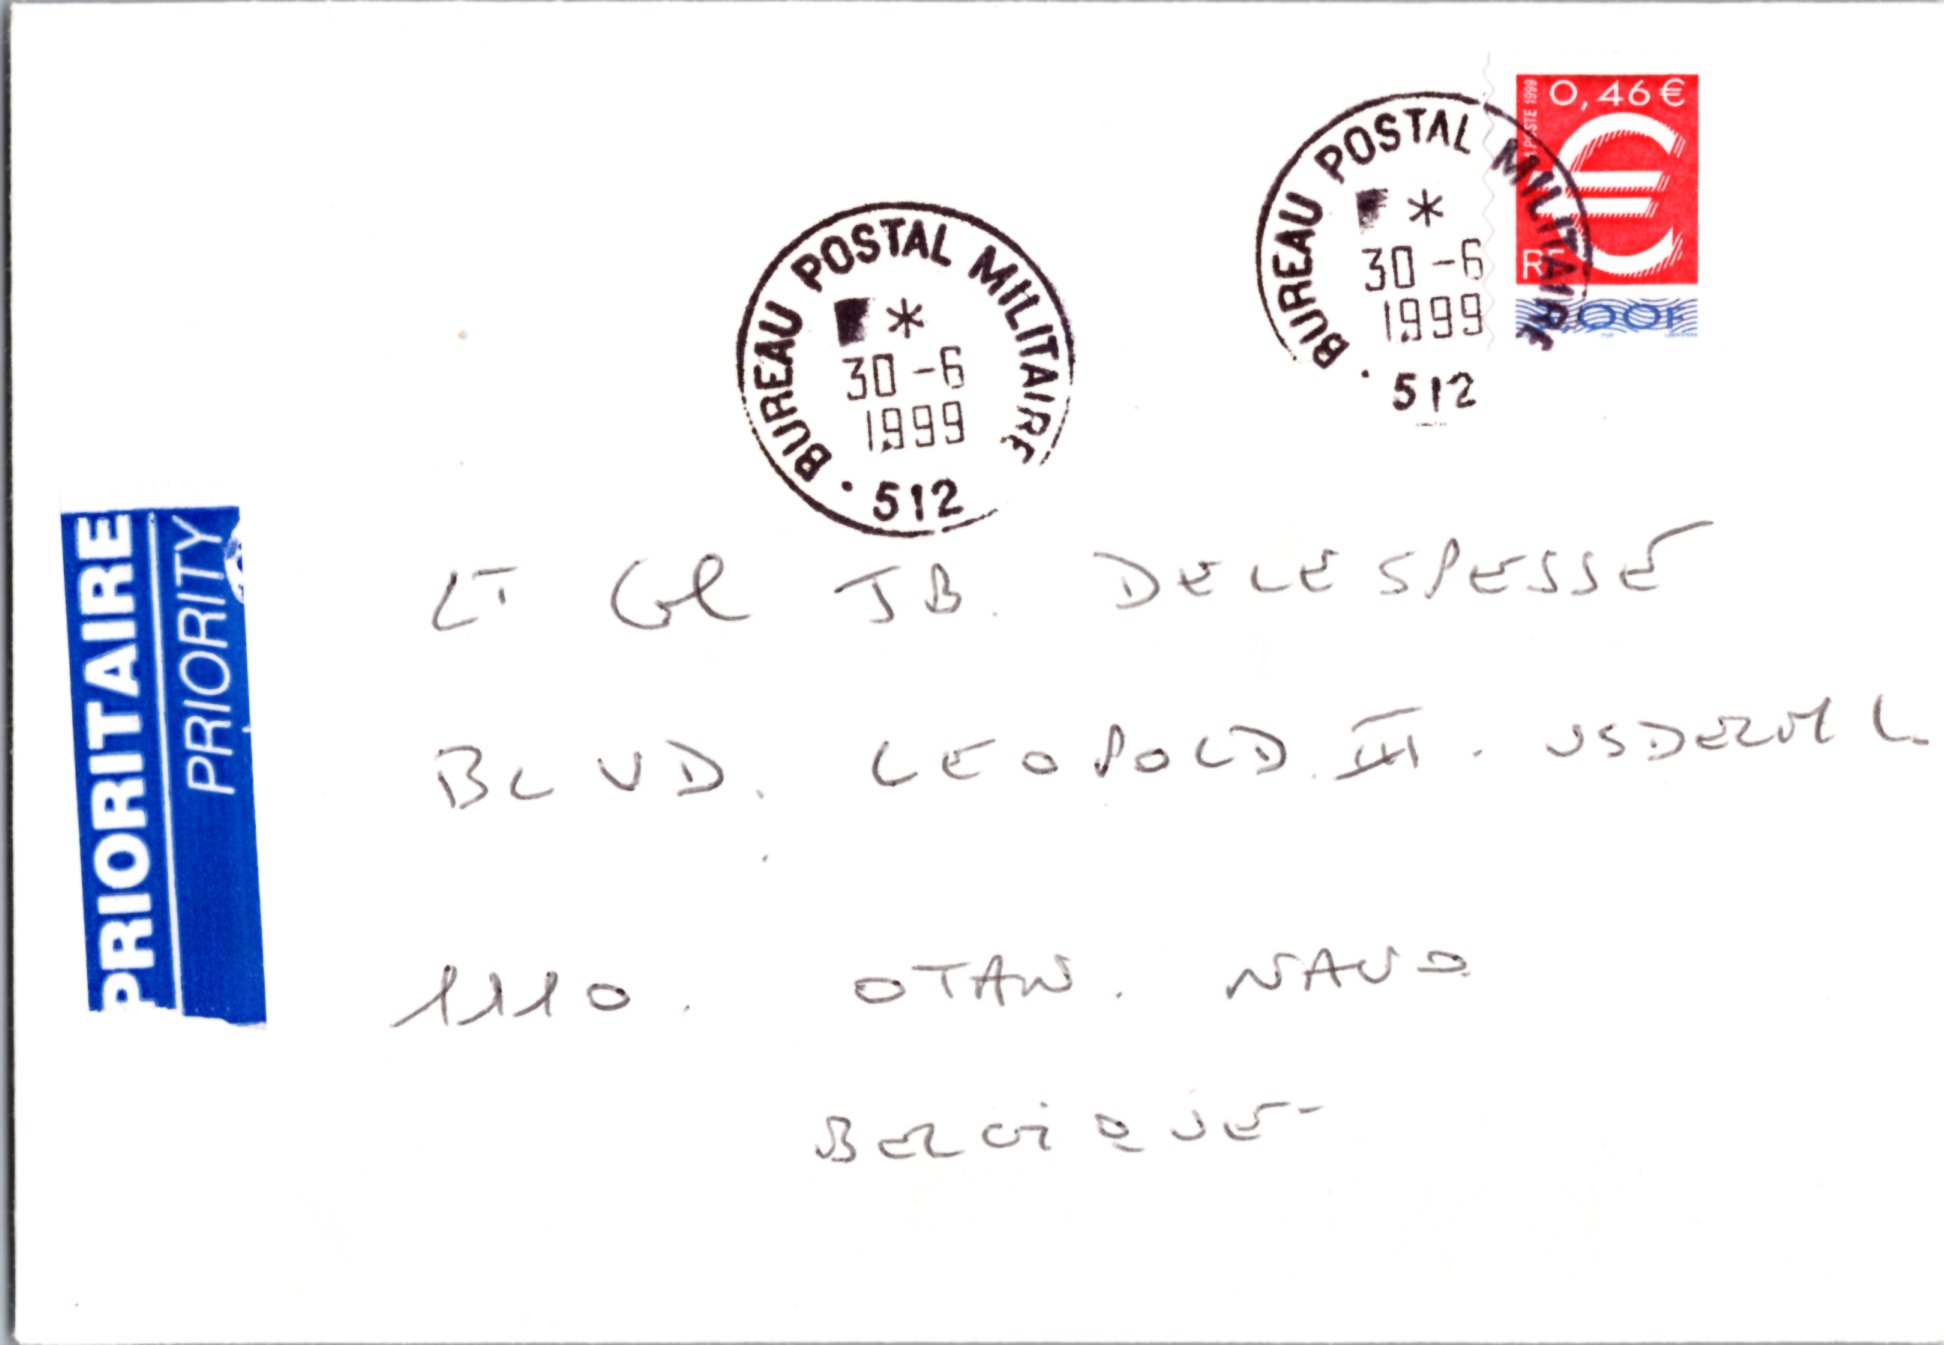 0,46 €
LA POSTE 1999
€
RF
3,00F
BUREAU POSTAL MILITAIRE
*
30 -6
1999
· 512
BUREAU POSTAL MILITAIRE
*
30 -6
1999
· 512
PRIORITAIRE
PRIORITY
LT Gl JB. DELESPESSE
BLVD. LEOPOLD III.
1110. OTAN. NAVO
BELGIQUE